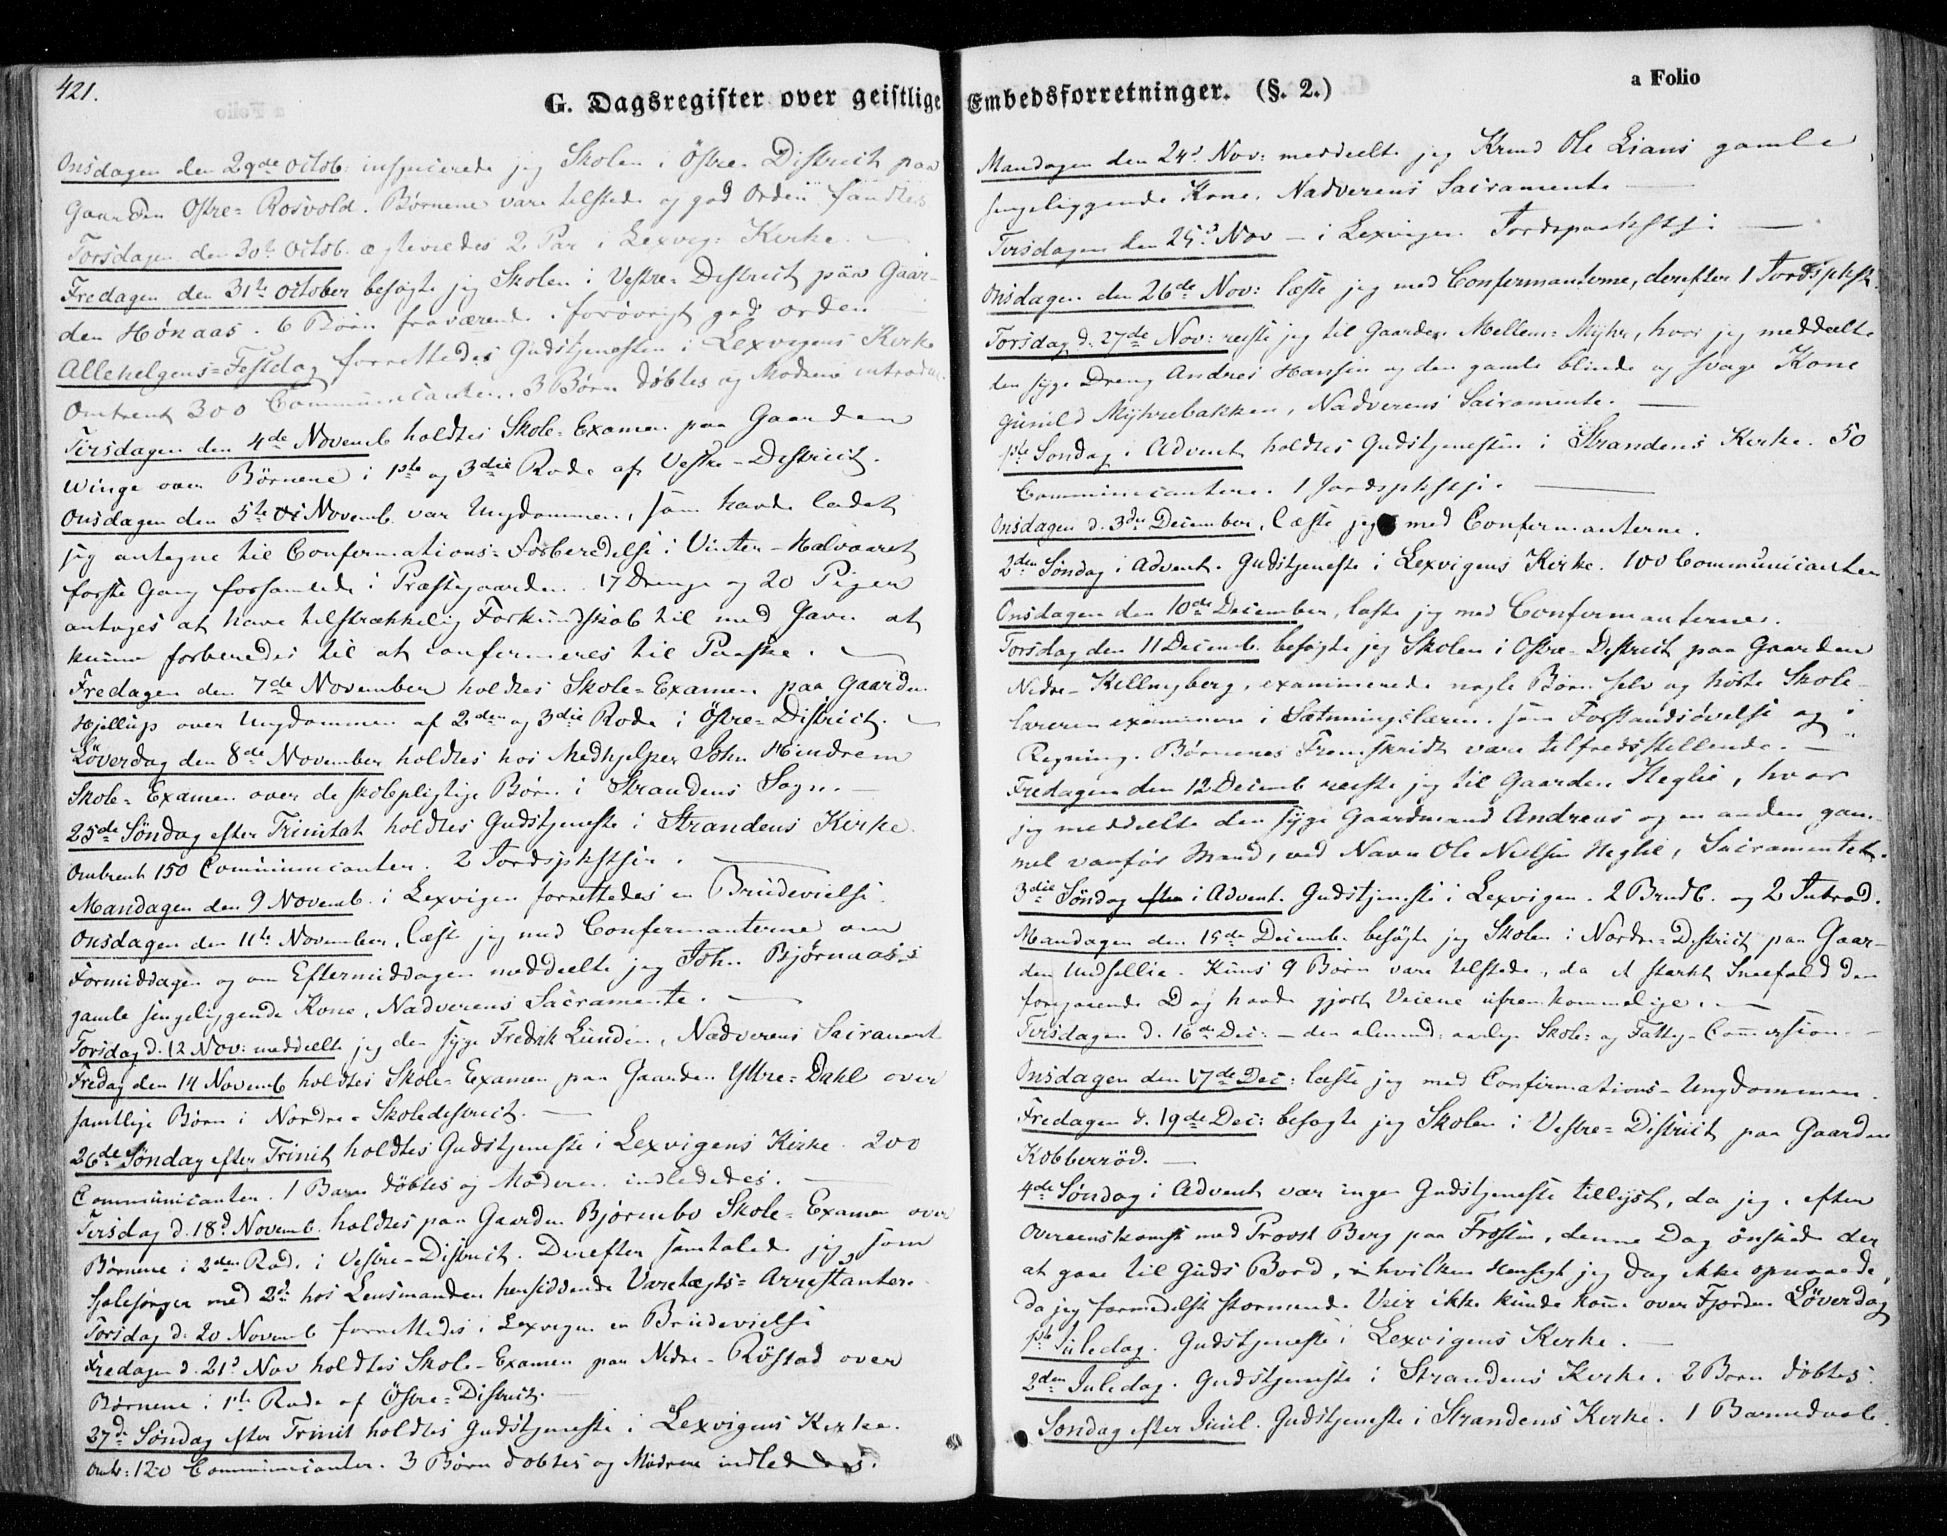 421.
G. Dagsregister over geistlige Embedsforretninger. (§. 2.)
a Folio
Onsdagen den 29de Octob: inspicerede jeg Skolen i Østre District paa
Gaarden Østre-Rosvold. Børnene vare tilstede og god Orden fandtes
Torsdagen den 30te Octob. ægteviedes 2 Par i Lexvig: Kirke. —
Fredagen den 31te October besøgte jeg Skolen i Vestre-District paa Gaar-
den Hønaas. 6 Børn fraværende. forøvrigt god orden
Allehelgens-Festdag forrettedes Gudstjenesten i Lexvigens Kirke
Omtrent 300 Communicanter. 3 Børn døbtes og Mødrene introduc.
Tirsdagen den 4de Novemb holdtes Skole-Examen paa Gaarden
Winge over Børnene i 1ste og 3die Rode af Vestre-District.
Onsdagen den 5te Novemb. var Ungdommen, som havde ladet
sig antegne til Confirmations-Forberedelse i Vinter-Halvaaret
første Gang forsamlede i Præstegaarden. 17 Drenge og 20 Piger
antoges at have tilstrækkelig Forkundskab til med Gavn at
kunne forberedes til at confirmeres til Paaske. —
Fredagen den 7de November holdtes Skole-Examen paa Gaarden
Hjellup over Ungdommen af 2den og 3die Rode i Østre-District. —
Løverdag den 8de November holdtes hos Medhjelper John Hindrem
Skole-Examen over de skolepligtige Børn i Strandens Sogn. —
25de Søndag efter Trinitat holdtes Gudstjeneste i Strandens Kirke.
Omtrent 150 Communicanter. 2 Jordspkstser. —
Mandagen den 9 Novemb. i Lexvigen forrettedes en Brudevielse.
Onsdagen den 11te November, læste jeg med Confirmanterne om
Formiddagen og om Eftermiddagen meddeelte jeg John Bjørnaas's
gamle sengeliggende Kone, Nadverens Sacramente. —
Torsdag d. 12 Nov: meddeelte jeg den syge Fredrik Lunden, Nadverens Sacrament
Fredag den 14 Novemb holdtes Skole-Examen paa Gaarden Yttre-Dahl over
samtlige Børn i Nordre-Skoledistrict. —
26de Søndag efter Trinit holdtes Gudstjeneste i Lexvigens Kirke. 200
Communicanter. 1 Barn døbtes og Moderen indlededes. —
Tirsdag d. 18d Novemb. holdtes paa Gaarden Bjørnebo Skole-Examen over
Børnene i 2den Rode i Vestre-District. Derefter samtalede jeg som
Sjelesørger med 2de hos Lensmanden hensiddende Varetægts-Arrestanter.
Torsdag d. 20 Novemb forrettedes i Lexvigen en Brudevielse
Fredagen d. 21d Nov holdtes Skole-Examen paa Nedre-Røstad over
Børnene i 1ste Rode af Østre-District. —
27de Søndag efter Trinit holdtes Gudstjeneste i Lexvigens Kirke.
Omtr: 120 Communicanter. 3 Børn døbtes og Mødrene indlededes.
Mandagen den 24d Nov: meddeelte jeg Ole Lians gamle
sengeliggende Kone, Nadverens Sacramente —
Tirsdagen den 25d Nov — i Lexvigen Jordspaakstse: —
Onsdagen den 26de Nov: læste jeg med Confirmanterne, derefter 1 Jordspkst.
Torsdag d. 27de Nov: reiste jeg til Gaarden Mellem-Myhr, hvor jeg meddeelte
den syge Dreng Andreas Hansen og den gamle blinde og svage Kone
Gunild Myhrebakken, Nadverens Sacramente. —
1ste Søndag i Advent holdtes Gudstjenesten i Strandens Kirke. 50
Communicantere. 1 Jordspkstse. —
Onsdagen d. 3die December, læste jeg med Confirmanterne.
2den Søndag i Advent. Gudstjeneste i Lexvigens Kirke. 100 Communicanter
Onsdagen den 10de December, læste jeg med Confirmanterne.
Torsdag den 11 Decemb. besøgte jeg Skolen i Østre-District paa Gaarden
Nedre-Killingberg, examinerede nogle Børn selv og hørte Skole-
læreren examinere i Sætningslæren som Forstandsøvelse og i
Regning. Børnenes Fremskridt vare tilfredsstillende. —
Fredagen den 12 Decemb reiste jeg til Gaarden Heglie, hvor
jeg meddeelte den syge Gaardmand Andreas og en anden gam-
mel vanfør Mand, ved Navn Ole Nielsen Heglie, Sacramentet.
3die Søndag i Advent. Gudstjeneste i Lexvigen. 2 Brudb. og 2 Introd.
Mandagen den 15de Decemb. besøgte jeg Skolen i Nordre-District paa Gaar-
den Kuns 9 Børn vare tilstede, da et stærkt Sneefald den
foregaaende Dag havde gjort Veiene ufremkommelige. —
Tirsdagen d. 16de Dec: — den almind: aarlige Skole- og Fattig-Commission —
Onsdagen den 17de Dec: læste jeg med Confirmations-Ungdommen.
Fredagen d. 19de Dec: besøgte jeg Skolen i Vestre-District paa Gaarden
Kobberrød. —
4de Søndag i Advent var ingen Gudstjeneste tillyst, da jeg, efter
Overeenskomst med Provst Berg paa Frosten, denne Dag ønskede der
at gaae til Guds Bord, hvilken Hensigt jeg dog ikke opnaaede,
da jeg formedelst stormende Veir ikke kunde komme over Fjorden Løverdag
1ste Juledag. Gudstjeneste i Lexvigens Kirke. —
2den Juledag. Gudstjeneste i Strandens Kirke. 2 Børn døbtes.
Søndag efter Juul. Gudstjeneste i Strandens Kirke. 1 Barnedaab.